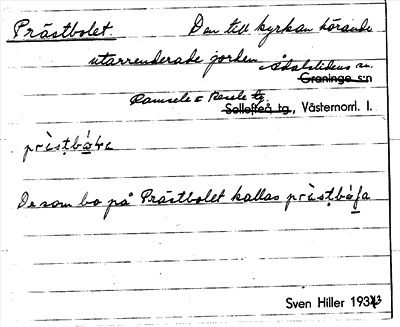 Prästbolet Den till kyrkan hörande
utarrenderade jorden Ådalslidens sn.
Graninge s:n
Ramsele o Resele tg.
Sollefteå tg., Västernorrl. l.
De som bo på Prästbolet kallas
Sven Hiller 193